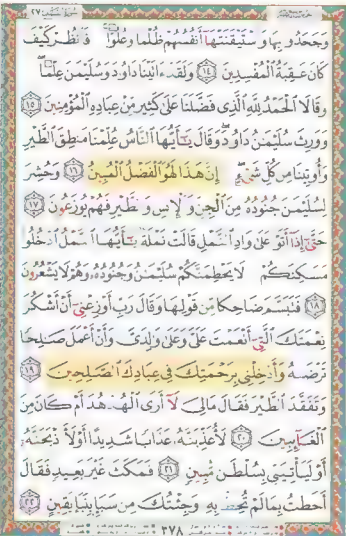 وَجَحَدُوا۟ بِهَا وَٱسْتَيْقَنَتْهَآ أَنفُسُهُمْ ظُلْمًا وَعُلُوًّا ۚ فَٱنظُرْ كَيْفَ
كَانَ عَـٰقِبَةُ ٱلْمُفْسِدِينَ ١٤ وَلَقَدْ ءَاتَيْنَا دَاوُۥدَ وَسُلَيْمَـٰنَ عِلْمًا
وَقَالَا ٱلْحَمْدُ لِلَّهِ ٱلَّذِى فَضَّلَنَا عَلَىٰ كَثِيرٍ مِّنْ عِبَادِهِ ٱلْمُؤْمِنِينَ ١٥
وَوَرِثَ سُلَيْمَـٰنُ دَاوُۥدَ ۖ وَقَالَ يَـٰٓأَيُّهَا ٱلنَّاسُ عُلِّمْنَا مَنطِقَ ٱلطَّيْرِ
وَأُوتِينَا مِن كُلِّ شَىْءٍ ۖ إِنَّ هَـٰذَا لَهُوَ ٱلْفَضْلُ ٱلْمُبِينُ ١٦ وَحُشِرَ
لِسُلَيْمَـٰنَ جُنُودُهُۥ مِنَ ٱلْجِنِّ وَٱلْإِنسِ وَٱلطَّيْرِ فَهُمْ يُوزَعُونَ ١٧
حَتَّىٰٓ إِذَآ أَتَوْا۟ عَلَىٰ وَادِ ٱلنَّمْلِ قَالَتْ نَمْلَةٌ يَـٰٓأَيُّهَا ٱلنَّمْلُ ٱدْخُلُوا۟
مَسَـٰكِنَكُمْ لَا يَحْطِمَنَّكُمْ سُلَيْمَـٰنُ وَجُنُودُهُۥ وَهُمْ لَا يَشْعُرُونَ
١٨ فَتَبَسَّمَ ضَاحِكًا مِّن قَوْلِهَا وَقَالَ رَبِّ أَوْزِعْنِىٓ أَنْ أَشْكُرَ
نِعْمَتَكَ ٱلَّتِىٓ أَنْعَمْتَ عَلَىَّ وَعَلَىٰ وَٰلِدَىَّ وَأَنْ أَعْمَلَ صَـٰلِحًا
تَرْضَىٰهُ وَأَدْخِلْنِى بِرَحْمَتِكَ فِى عِبَادِكَ ٱلصَّـٰلِحِينَ ١٩
وَتَفَقَّدَ ٱلطَّيْرَ فَقَالَ مَالِىَ لَآ أَرَى ٱلْهُدْهُدَ أَمْ كَانَ مِنَ
ٱلْغَآئِبِينَ ٢٠ لَأُعَذِّبَنَّهُۥ عَذَابًا شَدِيدًا أَوْ لَأَا۟ذْبَحَنَّهُۥٓ
أَوْ لَيَأْتِيَنِّى بِسُلْطَـٰنٍ مُّبِينٍ ٢١ فَمَكَثَ غَيْرَ بَعِيدٍ فَقَالَ
أَحَطتُ بِمَا لَمْ تُحِطْ بِهِۦ وَجِئْتُكَ مِن سَبَإٍۭ بِنَبَإٍ يَقِينٍ ٢٢
٣٧٨